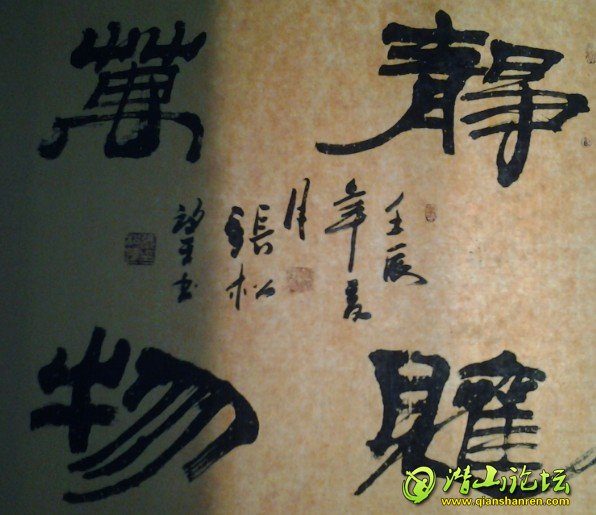 靜觀
萬物
壬辰
年夏
月
張松
书
潜山论坛
www.qianshanren.com